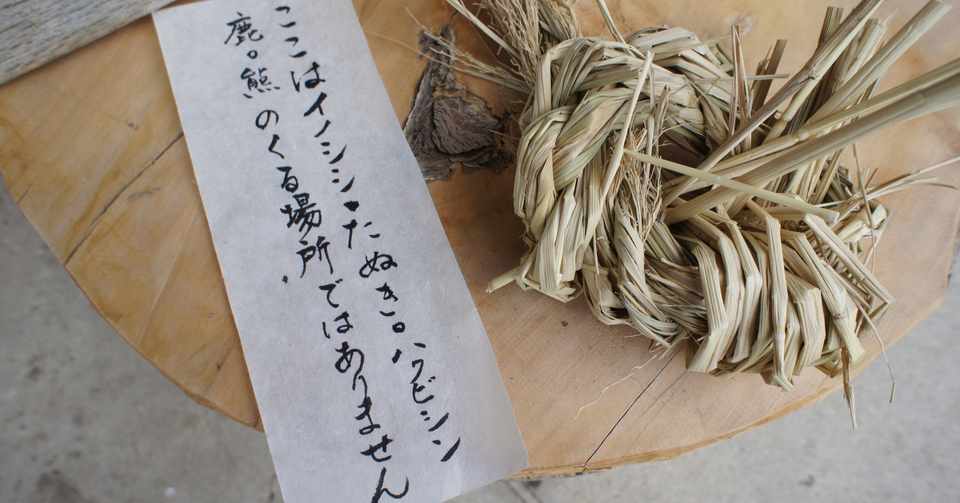 ここはイノシシ・たぬき。ハクビシン
鹿。熊のくる場所ではありません